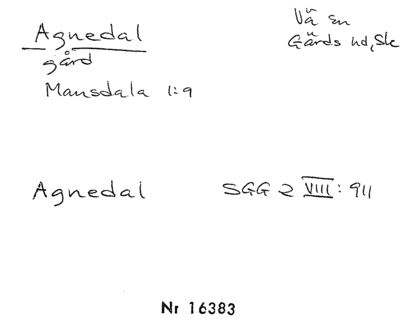 Agnedal
gård
Mansdala 1:9
Vä sn
Gärds hd, Sk
Agnedal SGG 2 VIII: 911
Nr 16383